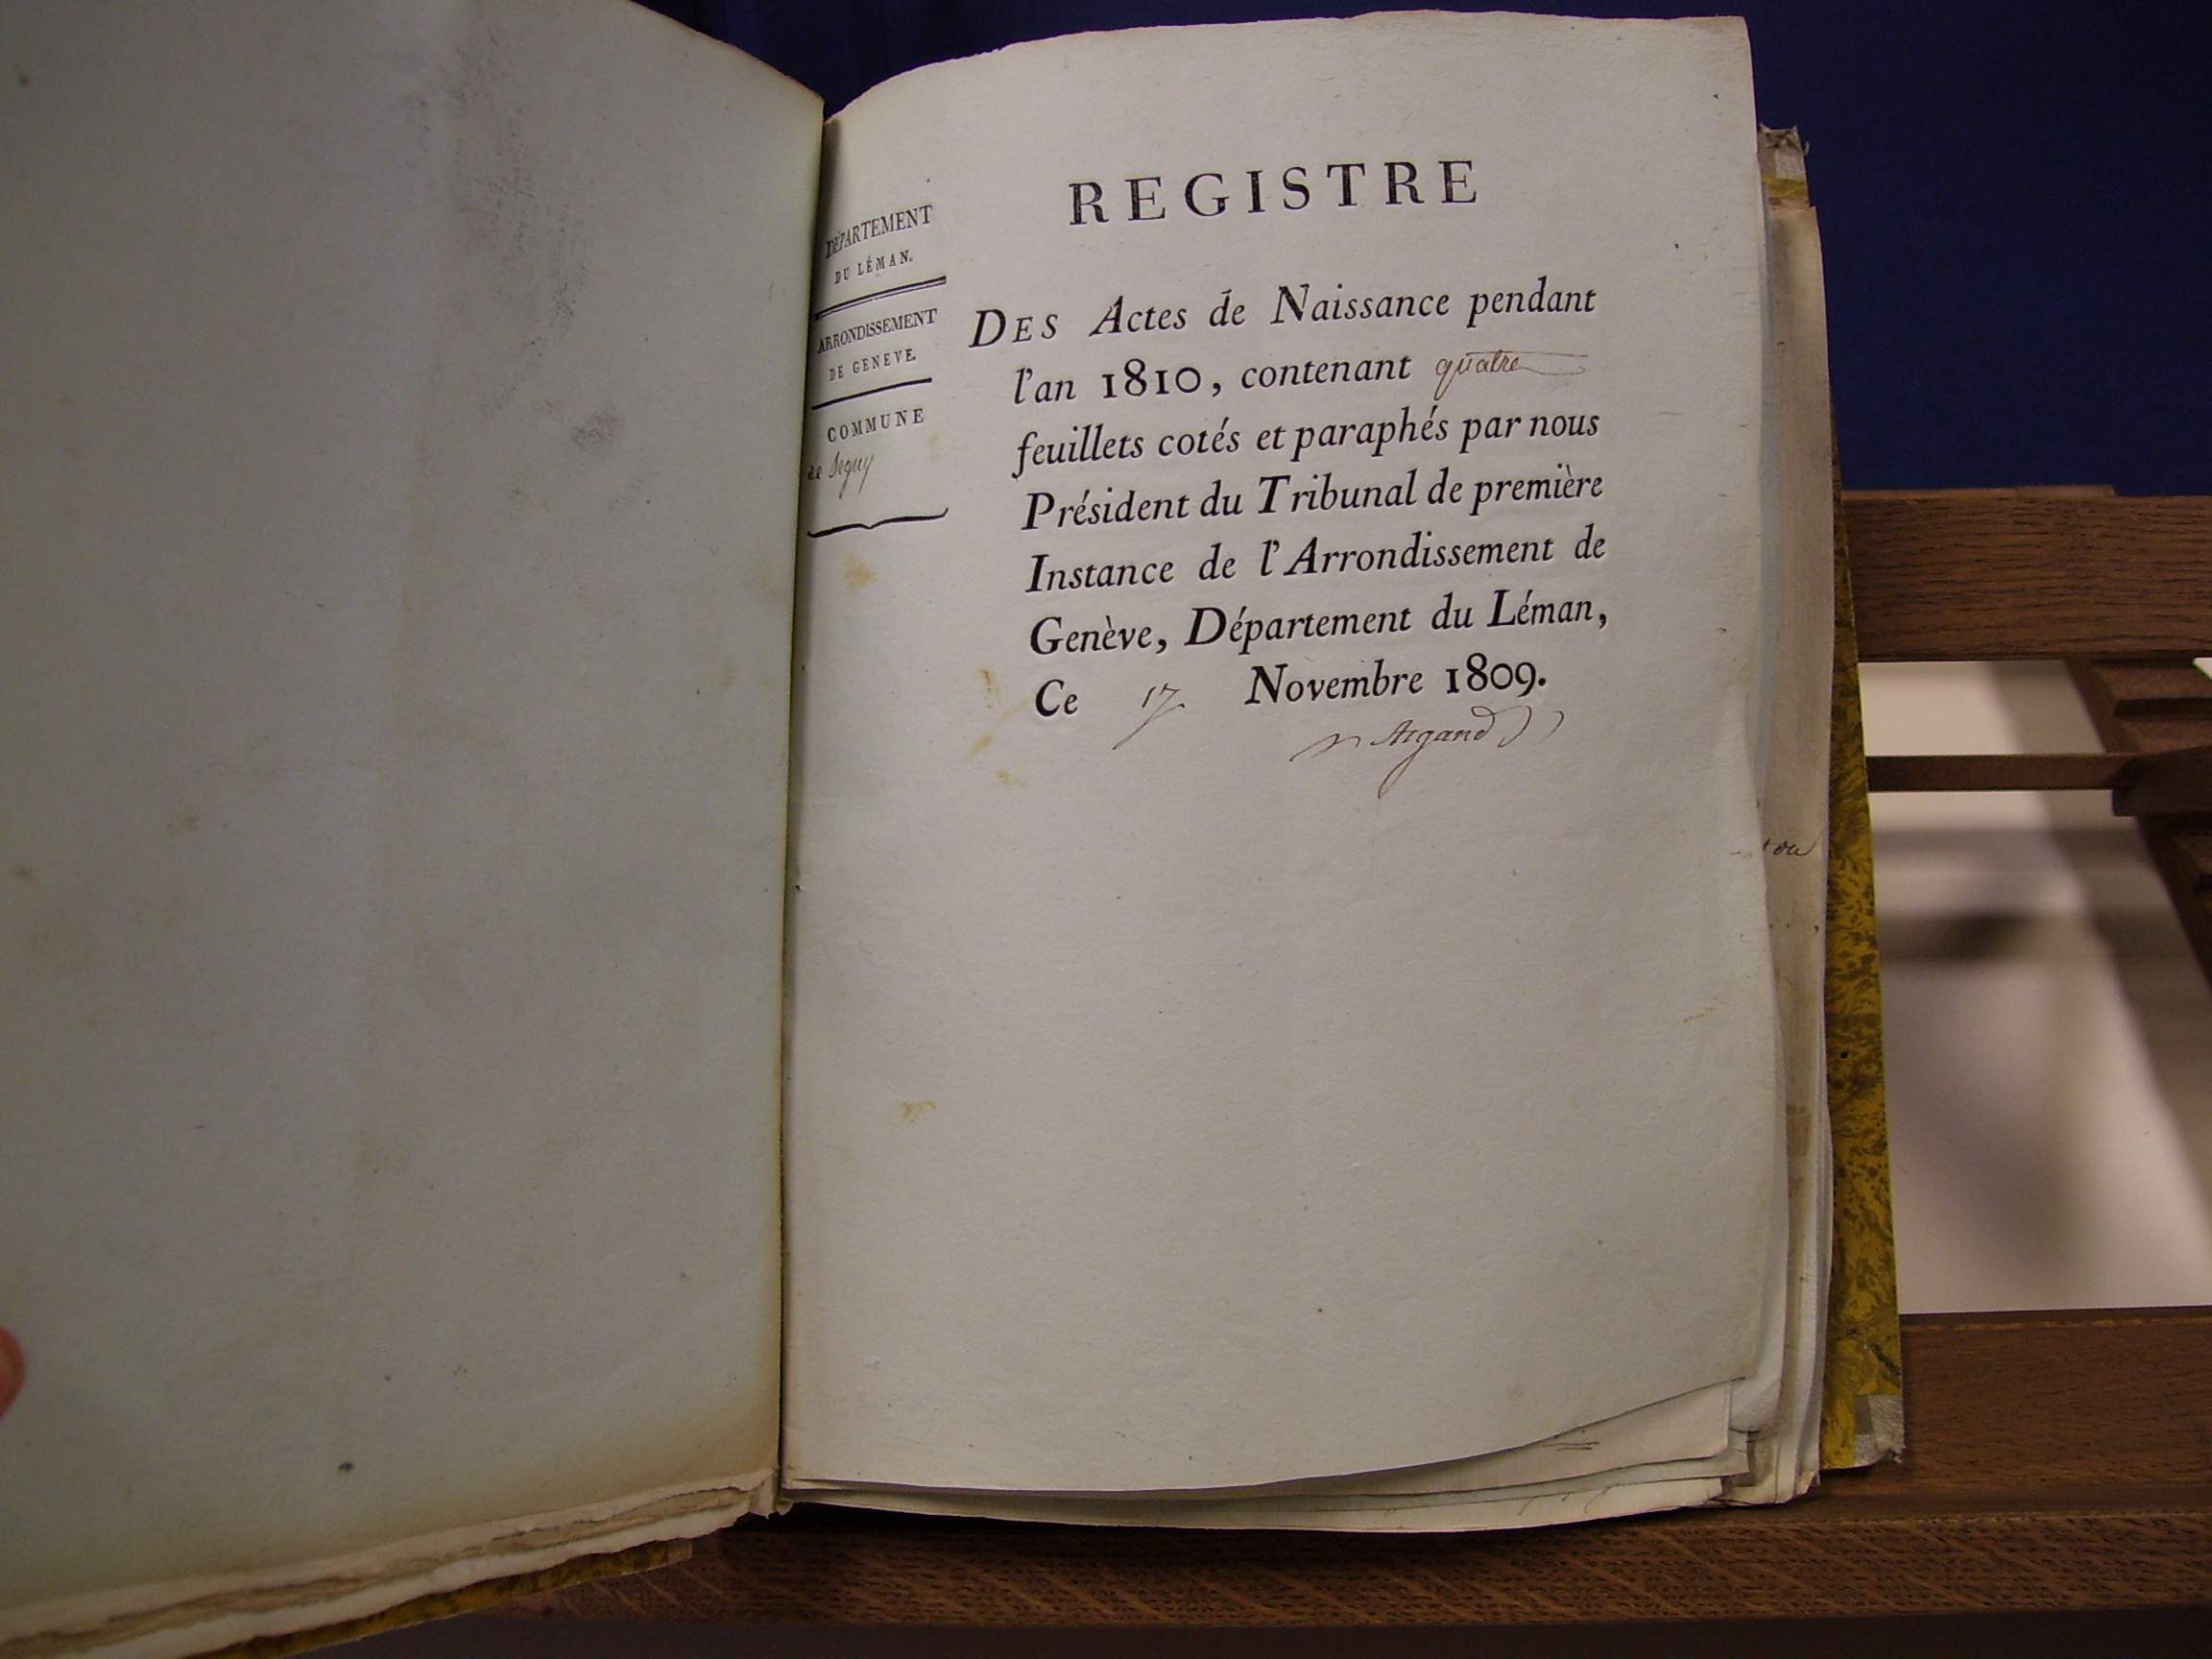 DÉPARTEMENT
DU LÉMAN.
ARRONDISSEMENT
DE GENEVE.
COMMUNE
de Segny
REGISTRE
DES Actes de Naissance pendant
l'an 1810, contenant quatre
feuillets cotés et paraphés par nous
Président du Tribunal de première
Instance de l'Arrondissement de
Genève, Département du Léman,
Ce 17 Novembre 1809.
Argand